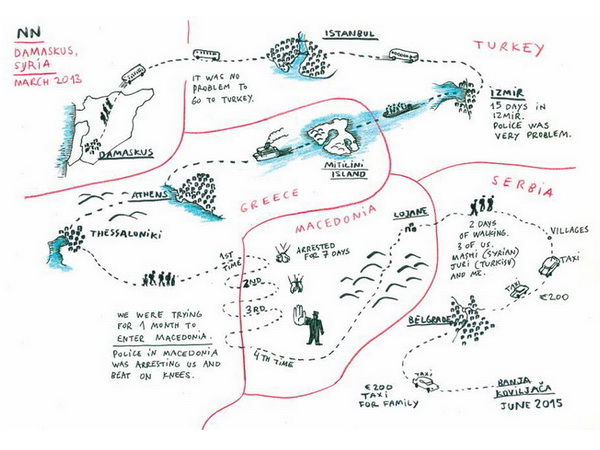 NN
DAMASKUS,
SYRIA
MARCH 2013
ISTANBUL
TURKEY
IT WAS NO
PROBLEM TO
GO TO TURKEY.
IZMIR
15 DAYS IN
IZMIR.
POLICE WAS
VERY PROBLEM.
DAMASKUS
MITILINI
ISLAND
ATHENS
GREECE
SERBIA
MACEDONIA
LOJANE
THESSALONIKI
2 DAYS
OF WALKING.
3 OF US.
MASHI (SYRIAN)
JURI (TURKISH)
AND ME.
VILLAGES
TAXI
TAXI
€200
1ST
TIME
ARRESTED
FOR 7 DAYS
2ND
3RD
4TH TIME
WE WERE TRYING
FOR 1 MONTH TO
ENTER MACEDONIA.
POLICE IN MACEDONIA
WAS ARRESTING US AND
BEAT ON KNEES.
BELGRADE
TAXI
€200
TAXI
FOR FAMILY
BANJA
KOVILJAČA
JUNE 2015